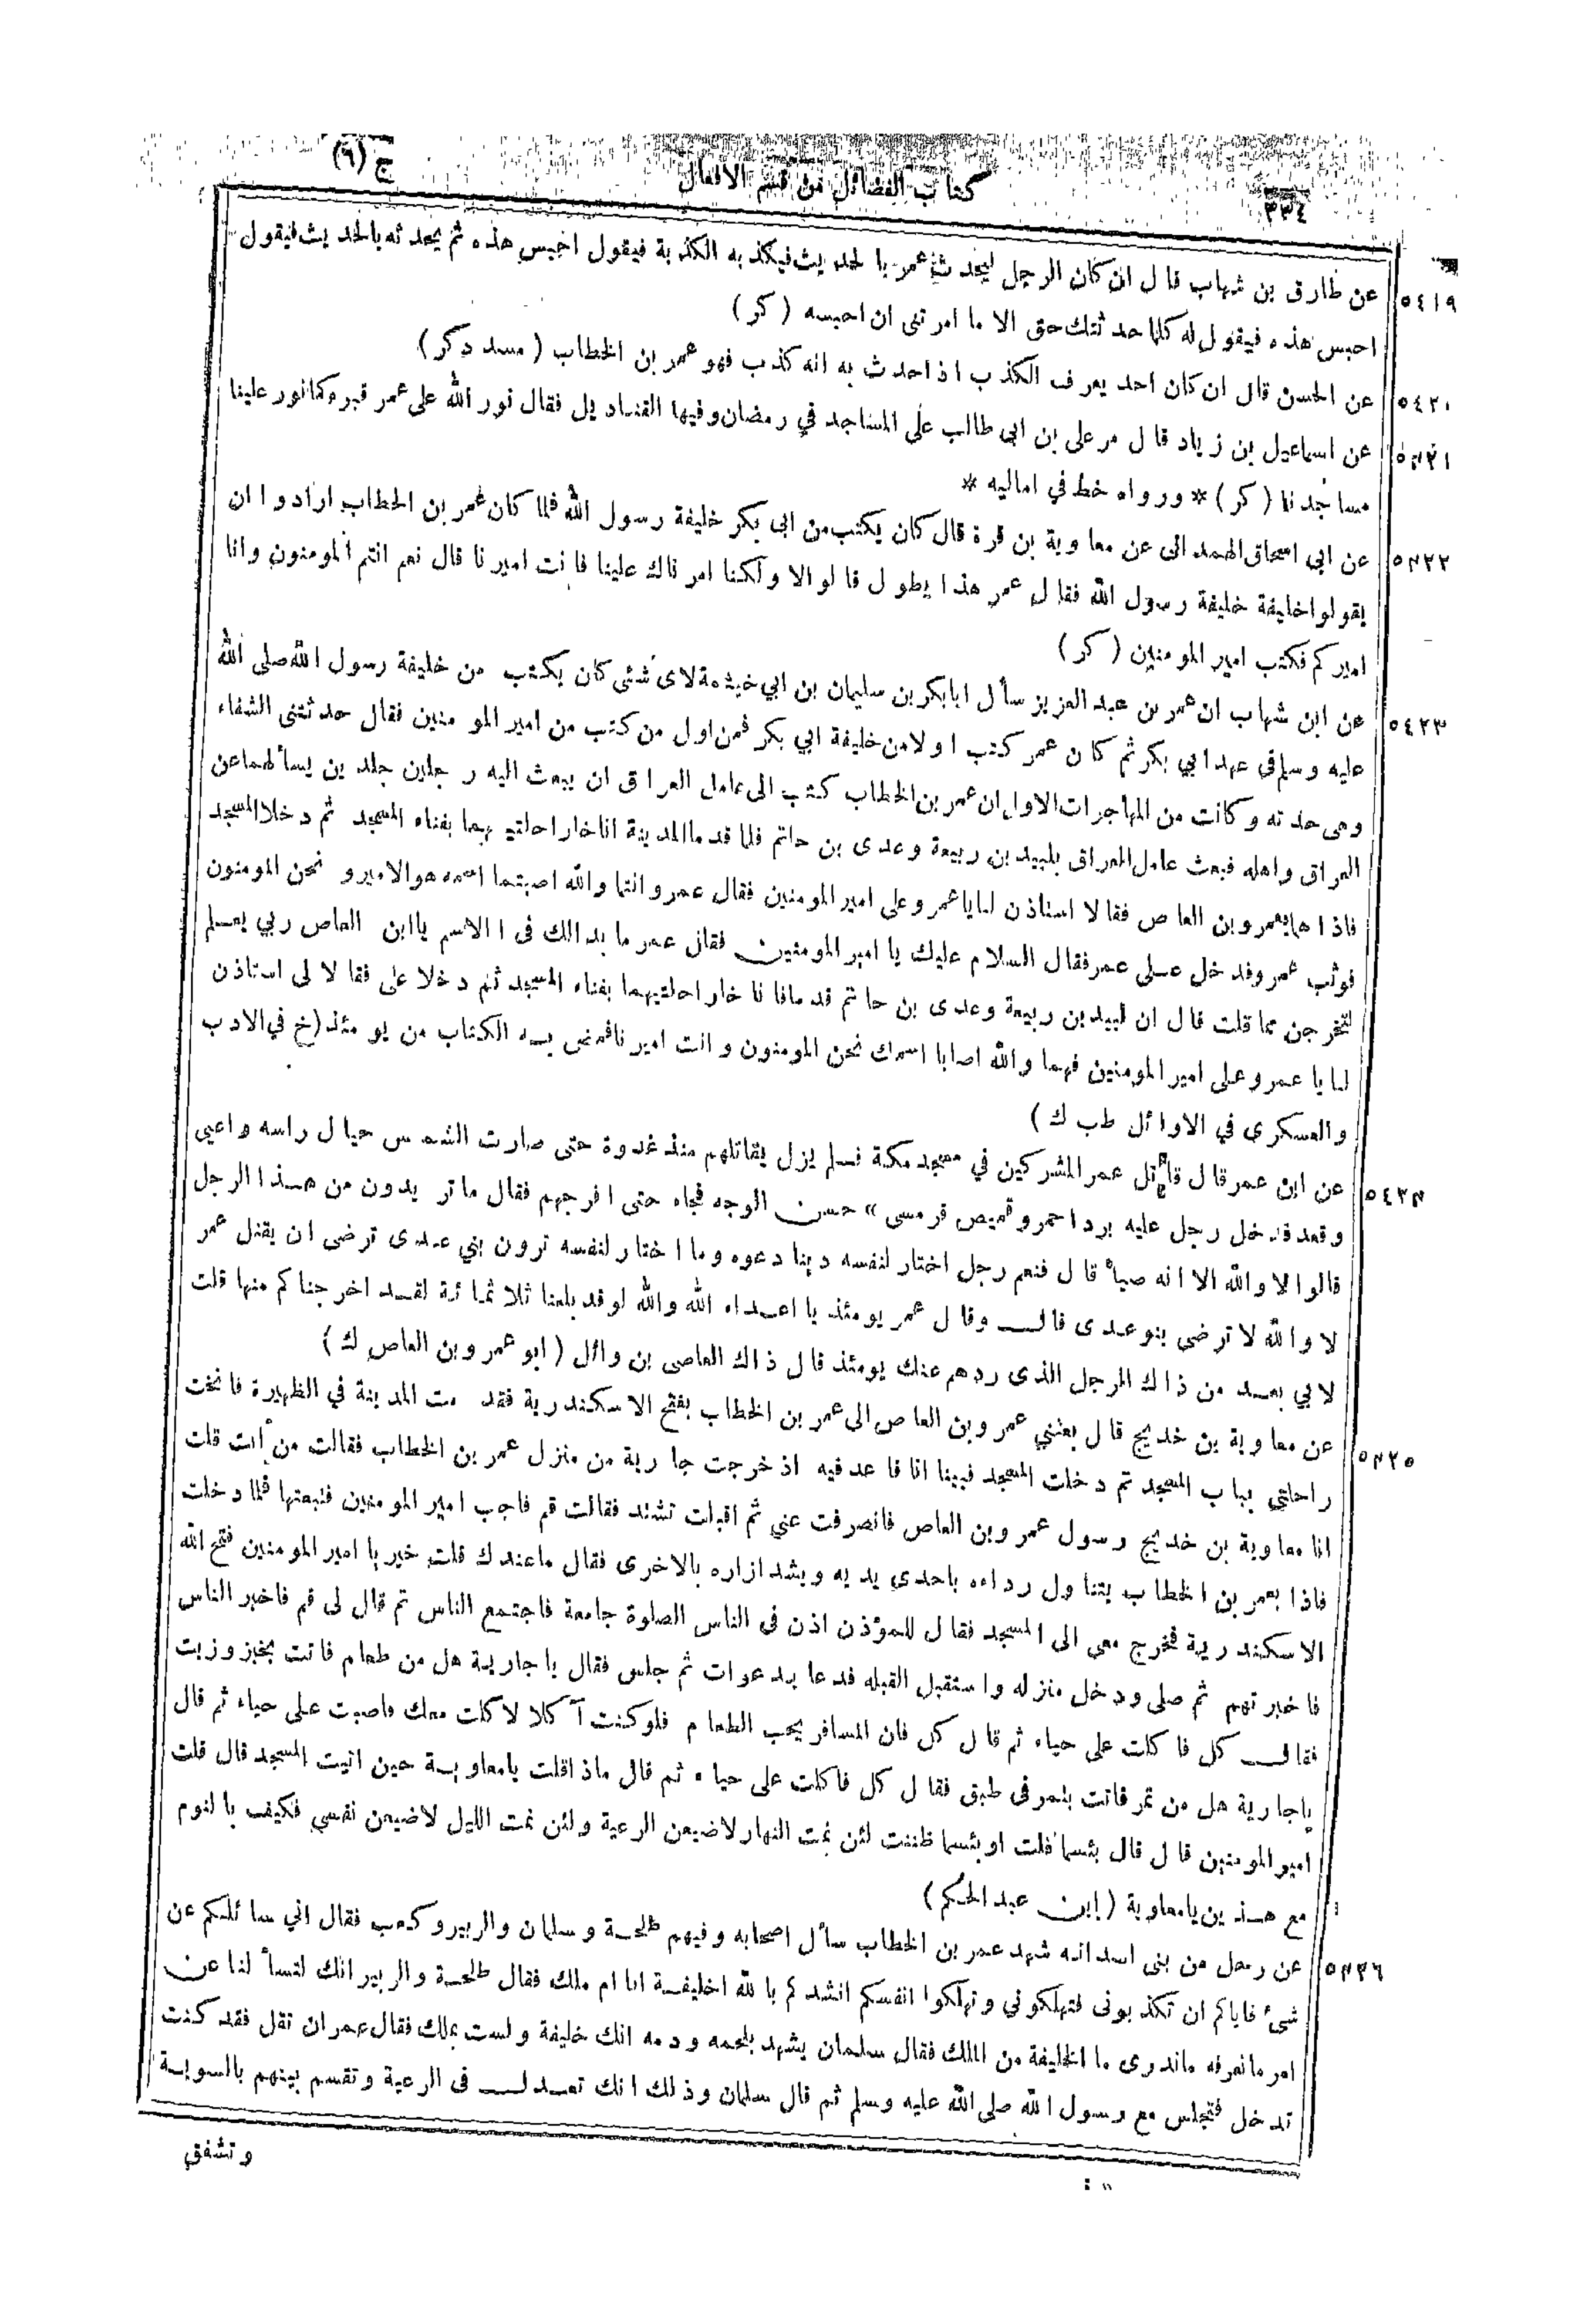 ج (٦)
كتاب الفضائل من قسم الافعال
٣٣٤
٥٤١٩ عن طارق بن شهاب قال ان كان الرجل ليحدث عمر بالحديث فيكذبه الكذبة فيقول احبس هذه ثم يحدثه بالحديث فيقول
احبس هذه فيقول له كلما حدثتك حق الا ما امرتنى ان احبسه (كر)
٥٤٢٠ عن الحسن قال ان كان احد يعرف الكذب اذا حدث به انه كذب فهو عمر بن الخطاب (مسدد كر)
٥٤٢١ عن اسماعيل بن زياد قال مر على بن ابى طالب على المساجد في رمضان وفيها القناديل فقال نور الله على عمر قبره كما نور علينا
مساجدنا (كر) * ورواه خط في اماليه *
٥٤٢٢ عن ابي اسحاق الهمدانى عن معاوية بن قرة قال كان يكتب من ابى بكر خليفة رسول الله فلما كان عمر بن الخطاب ارادوا ان
يقولوا خليفة خليفة رسول الله فقال عمر هذا يطول قالوا لا ولكنا امرناك علينا فانت اميرنا قال نعم انتم المومنون وانا
اميركم فكتب امير المومنين (كر)
٥٤٢٣ عن ابن شهاب ان عمر بن عبد العزيز سأل ابابكر بن سليمان بن ابي خيثمة لاى شئى كان يكتب من خليفة رسول الله صلى الله
عليه وسلم فى عهد ابي بكر ثم كان عمر كتب اولا من خليفة ابي بكر فمن اول من كتب من امير المومنين فقال حدثتنى الشفاء
وهى جدته وكانت من المهاجرات الاول ان عمر بن الخطاب كتب الى عامل العراق ان يبعث اليه رجلين جلدين يسألهما عن
العراق واهله فبعث عامل العراق بلبيد بن ربيعة وعدى بن حاتم فلما قدما المدينة اناخا راحلتيهما بفناء المسجد ثم دخلا المسجد
فاذا هما بعمرو بن العاص فقالا استاذن لنا يا عمرو على امير المومنين فقال عمرو انتما والله اصبتما اسمه هو الامير و نحن المومنون
فوثب عمرو فدخل على عمر فقال السلام عليك يا امير المومنين فقال عمر ما بدالك فى الاسم يا ابن العاص ربي يعلم
لتخرجن مما قلت قال ان لبيد بن ربيعة وعدى بن حاتم قدما فاناخا راحلتيهما بفناء المسجد ثم دخلا على فقالا لى استاذن
لنا يا عمرو على امير المومنين فهما والله اصابا اسمك نحن المومنون وانت اميرنا فمضى به الكتاب من يومئذ (خ في الادب
والعسكرى في الاوائل طب ك)
٥٤٢٤ عن ابن عمر قال قاتل عمر المشركين في مسجد مكة فلم يزل يقاتلهم منذ غدوة حتى صارت الشمس حيال راسه واعيى
وقعد فدخل رجل عليه برد احمر وقميص قرمسى» حسن الوجه فجاء حتى افرجهم فقال ما تريدون من هذا الرجل
قالوا لا والله الا انه صبأ قال فنعم رجل اختار لنفسه دينا دعوه وما اختار لنفسه ترون بني عدى ترضى ان يقتل عمر
لا والله لا ترضى بنو عدى قال وقال عمر يومئذ يا اعداء الله والله لو قد بلغنا ثلاثمائة لقد اخرجناكم منها قلت
لابي بعد من ذاك الرجل الذى ردهم عنك يومئذ قال ذاك العاصى بن وائل (ابو عمرو بن العاص ك)
٥٤٢٥ عن معاوية بن خديج قال بعثني عمرو بن العاص الى عمر بن الخطاب بفتح الاسكندرية فقدمت المدينة في الظهيرة فانخت
راحلتي بباب المسجد ثم دخلت المسجد فبينا انا قاعد فيه اذ خرجت جارية من منزل عمر بن الخطاب فقالت من أنت قلت
انا معاوية بن خديج رسول عمرو بن العاص فانصرفت عني ثم اقبلت تشتد فقالت قم فاجب امير المومنين فتبعتها فلما دخلت
فاذا بعمر بن الخطاب يتناول رداءه باحدى يديه ويشد ازاره بالاخرى فقال ما عندك قلت خير يا امير المومنين فتح الله
الاسكندرية فخرج معي الى المسجد فقال للمؤذن اذن فى الناس الصلوة جامعة فاجتمع الناس ثم قال لى قم فاخبر الناس
فاخبرتهم ثم صلى ودخل منزله واستقبل القبله فدعا بدعوات ثم جلس فقال يا جارية هل من طعام فاتت بخبز وزيت
فقال كل فاكلت على حياء ثم قال كل فان المسافر يحب الطعام فلو كنت آكلا لاكلت معك فاصبت على حياء ثم قال
يا جارية هل من تمر فاتت بتمر فى طبق فقال كل فاكلت على حياء ثم قال ماذا قلت يا معاوية حين اتيت المسجد قال قلت
امير المومنين قال قال بئسما قلت او بئسما ظننت لئن نمت النهار لاضيعن الرعية ولئن نمت الليل لاضيعن نفسي فكيف بالنوم
مع هذين يا معاوية (ابن عبد الحكم)
٥٤٢٦ عن رجل من بنى اسد انه شهد عمر بن الخطاب سأل اصحابه وفيهم طلحة وسلمان والزبير وكعب فقال اني سائلكم عن
شئ فاياكم ان تكذبونى فتهلكوني وتهلكوا انفسكم انشدكم بالله اخليفة انا ام ملك فقال طلحة والزبير انك لتسألنا عن
امر ما نعرفه ماندرى ما الخليفة من الملك فقال سلمان يشهد بلحمه ودمه انك خليفة ولست بملك فقال عمر ان تقل فقد كنت
تدخل فتجلس مع رسول الله صلى الله عليه وسلم ثم قال سلمان وذلك انك تعدل فى الرعية وتقسم بينهم بالسوية
وتشفق